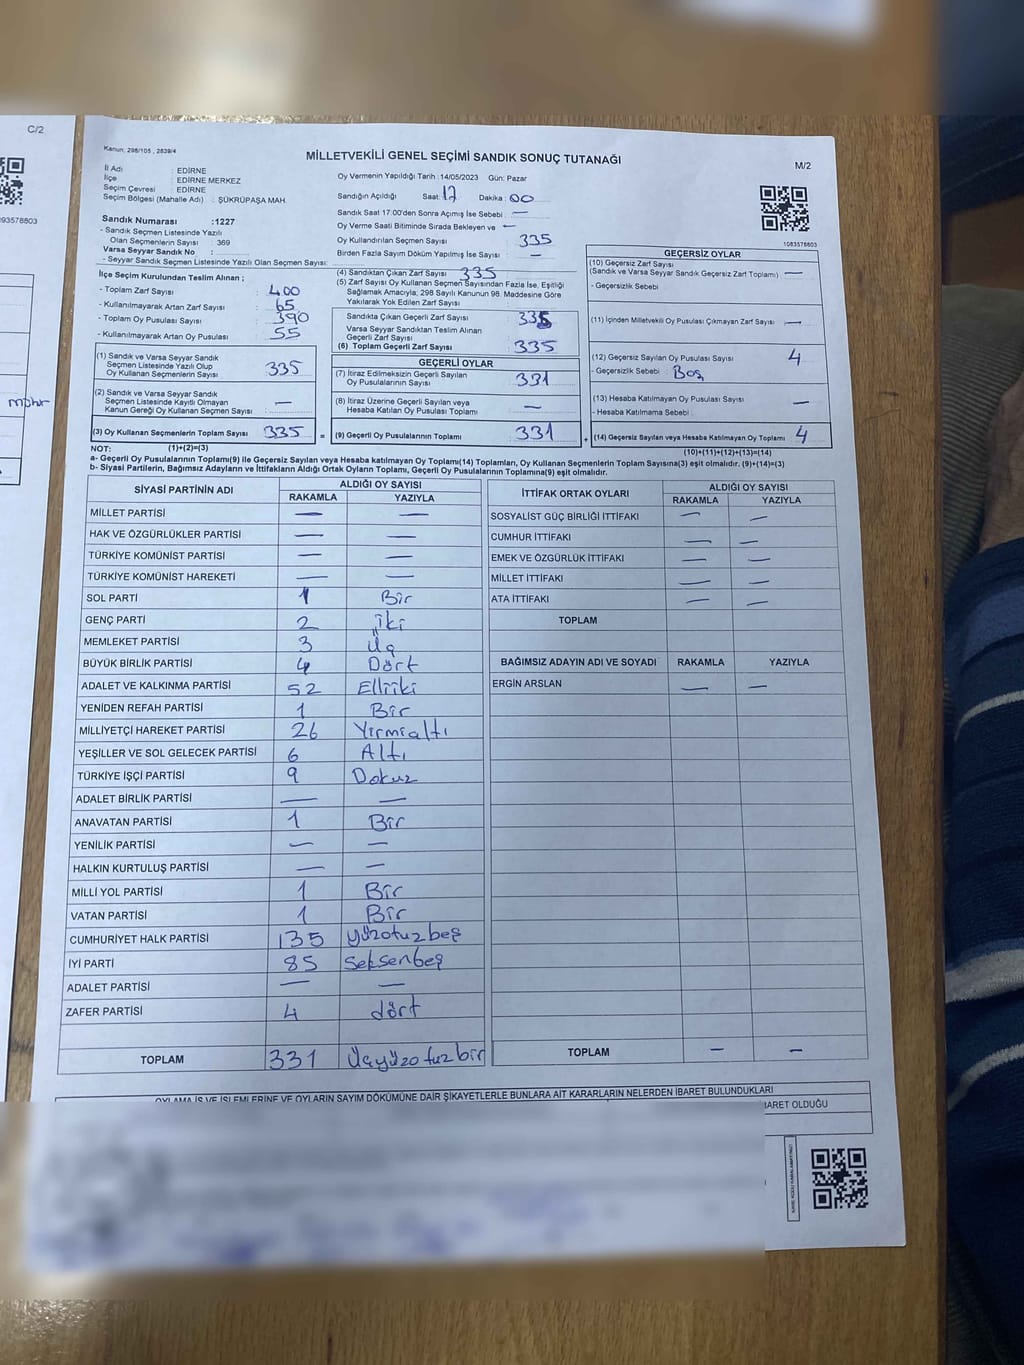 C/2
93578803
mühr
Kanun: 298/105 , 2839/4
MİLLETVEKİLİ GENEL SEÇİMİ SANDIK SONUÇ TUTANAĞI
M/2
İl Adı : EDİRNE
İlçe : EDİRNE MERKEZ
Seçim Çevresi : EDİRNE
Seçim Bölgesi (Mahalle Adı) : ŞÜKRÜPAŞA MAH.
Sandık Numarası :1227
- Sandık Seçmen Listesinde Yazılı
Olan Seçmenlerin Sayısı : 369
Varsa Seyyar Sandık No :
- Seyyar Sandık Seçmen Listesinde Yazılı Olan Seçmen Sayısı:
Oy Vermenin Yapıldığı Tarih : 14/05/2023 Gün: Pazar
Sandığın Açıldığı Saat: 17 Dakika: 00
Sandık Saat 17.00'den Sonra Açımış İse Sebebi : —
Oy Verme Saati Bitiminde Sırada Bekleyen ve —
Oy Kullandırılan Seçmen Sayısı 335
Birden Fazla Sayım Döküm Yapılmış İse Sayısı : —
1083578803
İlçe Seçim Kurulundan Teslim Alınan ;
- Toplam Zarf Sayısı : 400
- Kullanılmayarak Artan Zarf Sayısı : 65
- Toplam Oy Pusulası Sayısı : 390
- Kullanılmayarak Artan Oy Pusulası : 55
(1) Sandık ve Varsa Seyyar Sandık
Seçmen Listesinde Yazılı Olup
Oy Kullanan Seçmenlerin Sayısı : 335
(2) Sandık ve Varsa Seyyar Sandık
Seçmen Listesinde Kayıtlı Olmayan
Kanun Gereği Oy Kullanan Seçmen Sayısı : —
(3) Oy Kullanan Seçmenlerin Toplam Sayısı : 335
(4) Sandıktan Çıkan Zarf Sayısı : 335
(5) Zarf Sayısı Oy Kullanan Seçmen Sayısından Fazla İse, Eşitliği
Sağlamak Amacıyla; 298 Sayılı Kanunun 98. Maddesine Göre
Yakılarak Yok Edilen Zarf Sayısı :
Sandıkta Çıkan Geçerli Zarf Sayısı : 335
Varsa Seyyar Sandıktan Teslim Alınan
Geçerli Zarf Sayısı :
(6) Toplam Geçerli Zarf Sayısı : 335
GEÇERLİ OYLAR
(7) İtiraz Edilmeksizin Geçerli Sayılan
Oy Pusulalarının Sayısı : 331
(8) İtiraz Üzerine Geçerli Sayılan veya
Hesaba Katılan Oy Pusulası Toplamı : —
= (9) Geçerli Oy Pusulalarının Toplamı : 331
GEÇERSİZ OYLAR
(10) Geçersiz Zarf Sayısı
(Sandık ve Varsa Seyyar Sandık Geçersiz Zarf Toplamı) : —
- Geçersizlik Sebebi :
(11) İçinden Milletvekili Oy Pusulası Çıkmayan Zarf Sayısı : —
(12) Geçersiz Sayılan Oy Pusulası Sayısı : 4
- Geçersizlik Sebebi : Boş
(13) Hesaba Katılmayan Oy Pusulası Sayısı : —
- Hesaba Katılmama Sebebi :
+ (14) Geçersiz Sayılan veya Hesaba Katılmayan Oy Toplamı : 4
NOT: (1)+(2)=(3) (10)+(11)+(12)+(13)=(14)
a- Geçerli Oy Pusulasının Toplamı(9) ile Geçersiz Sayılan veya Hesaba katılmayan Oy Toplamı(14) Toplamları, Oy Kullanan Seçmenlerin Toplam Sayısına(3) eşit olmalıdır. (9)+(14)=(3)
b- Siyasi Partilerin, Bağımsız Adayların ve İttifakların Aldığı Ortak Oyların Toplamı, Geçerli Oy Pusulasının Toplamına(9) eşit olmalıdır.
SİYASİ PARTİNİN ADI ALDIĞI OY SAYISI
RAKAMLA YAZIYLA
MİLLET PARTİSİ — —
HAK VE ÖZGÜRLÜKLER PARTİSİ — —
TÜRKİYE KOMÜNİST PARTİSİ — —
TÜRKİYE KOMÜNİST HAREKETİ — —
SOL PARTİ 1 Bir
GENÇ PARTİ 2 İki
MEMLEKET PARTİSİ 3 Üç
BÜYÜK BİRLİK PARTİSİ 4 Dört
ADALET VE KALKINMA PARTİSİ 52 Elliiki
YENİDEN REFAH PARTİSİ 1 Bir
MİLLİYETÇİ HAREKET PARTİSİ 26 Yirmialtı
YEŞİLLER VE SOL GELECEK PARTİSİ 6 Altı
TÜRKİYE İŞÇİ PARTİSİ 9 Dokuz
ADALET BİRLİK PARTİSİ — —
ANAVATAN PARTİSİ 1 Bir
YENİLİK PARTİSİ — —
HALKIN KURTULUŞ PARTİSİ — —
MİLLİ YOL PARTİSİ 1 Bir
VATAN PARTİSİ 1 Bir
CUMHURİYET HALK PARTİSİ 135 yüzotuzbeş
İYİ PARTİ 85 seksenbeş
ADALET PARTİSİ — —
ZAFER PARTİSİ 4 dört
TOPLAM 331 üçyüzotuzbir
İTTİFAK ORTAK OYLARI ALDIĞI OY SAYISI
RAKAMLA YAZIYLA
SOSYALİST GÜÇ BİRLİĞİ İTTİFAKI — —
CUMHUR İTTİFAKI — —
EMEK VE ÖZGÜRLÜK İTTİFAKI — —
MİLLET İTTİFAKI — —
ATA İTTİFAKI — —
TOPLAM
BAĞIMSIZ ADAYIN ADI VE SOYADI RAKAMLA YAZIYLA
ERGİN ARSLAN — —
TOPLAM — —
OYLAMA İŞ VE İŞLEMLERİNE VE OYLARIN SAYIM DÖKÜMÜNE DAİR ŞİKAYETLERLE BUNLARA AİT KARARLARIN NELERDEN İBARET BULUNDUKLARI
İBARET OLDUĞU